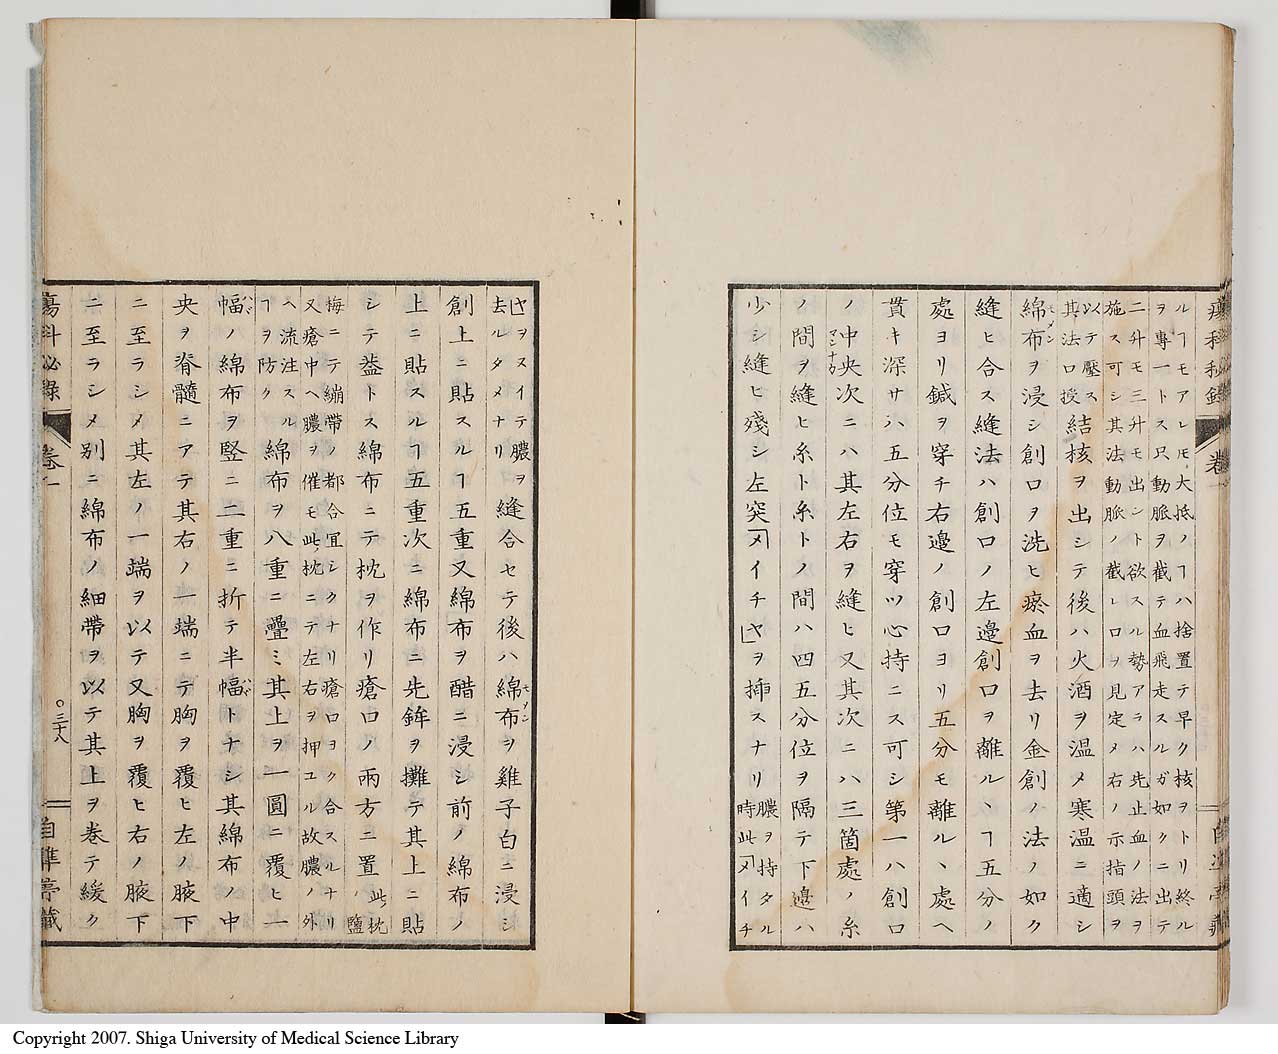 瘍科秘録
卷一
ルヿモアレ𪜈大抵ノヿハ捨置テ早ク核ヲトリ終ル
ヲ專一トス只動脈ヲ截テ血飛走スルガ如クニ出テ
二升モ三升モ出シト欲スル勢アラハ先止血ノ法ヲ
施ス可シ其法動脈ノ截レ口ヲ見定メ右ノ示指頭ヲ
以テ壓ス
其法口授
結核ヲ出シテ後ハ火酒ヲ温メ寒温ニ適シ
綿布ヲ浸シ創口ヲ洗ヒ瘀血ヲ去リ金創ノ法ノ如ク
縫ヒ合ス縫法ハ創口ノ左邊創口ヲ離ルヽヿ五分ノ
處ヨリ鍼ヲ穿チ右邊ノ創口ヨリ五分モ離ルヽ處ヘ
貫キ深サハ五分位モ穿ツ心持ニス可シ第一ハ創口
ノ中央次ニハ其左右ヲ縫ヒ又其次ニハ三箇處ノ糸
ノ間ヲ縫ヒ糸ト糸トノ間ハ四五分位ヲ隔テ下邊ハ
少シ縫ヒ殘シ左突「メイチヤ」ヲ挿スナリ
膿ヲ持タル
時此「メイチ
ヤ」ヲスイテ膿ヲ
去ルタメナリ
縫合セテ後ハ綿布ヲ雞子白ニ浸シ
創上ニ貼スルヿ五重又綿布ヲ醋ニ浸シ前ノ綿布ノ
上ニ貼スルヿ五重次ニ綿布ニ先鉾ヲ攤テ其上ニ貼
シテ葢トス綿布ニテ枕ヲ作リ瘡口ノ兩方ニ置
此枕
ハ鹽
梅ニテ繃帶ノ都合宜シクナリ瘡口ヨク合スルナリ
又瘡中ヘ膿ヲ催モ此枕ニテ左右ヲ押ユル故膿ノ外
ヘ流注スル
ヿヲ防ク
綿布ヲ八重ニ疊ミ其上ヲ一圓ニ覆ヒ一
幅ノ綿布ヲ竪ニ二重ニ折テ半幅トナシ其綿布ノ中
央ヲ脊髓ニアテ其右ノ一端ニテ胸ヲ覆ヒ左ノ腋下
ニ至ラシメ其左ノ一端ヲ以テ又胸ヲ覆ヒ右ノ腋下
ニ至ラシメ別ニ綿布ノ細帶ヲ以テ其上ヲ卷テ緩ク
瘍科秘録
卷一
○三十八
自準亭藏
Copyright 2007. Shiga University of Medical Science Library